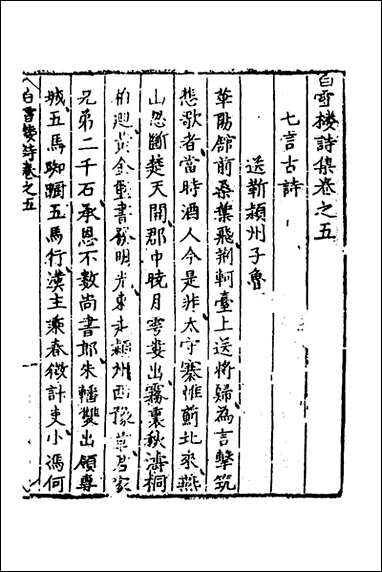 白雪樓詩集卷之五
七言古詩
送靳潁州子魯
華陽館前桑葉飛荊軻臺上送將歸為言擊筑
悲歌者當時酒人今是非太守褰帷薊北來燕
山忽斷楚天開郡中曉月雩婁出霧裏秋濤桐
柏迴黃金璽書發明光東走潁州西豫章君家
兄弟二千石承恩不數尚書郎朱轓雙出領專
城五馬踟躕五馬行漢主乘春徵計吏小馮何
白雪樓詩卷之五